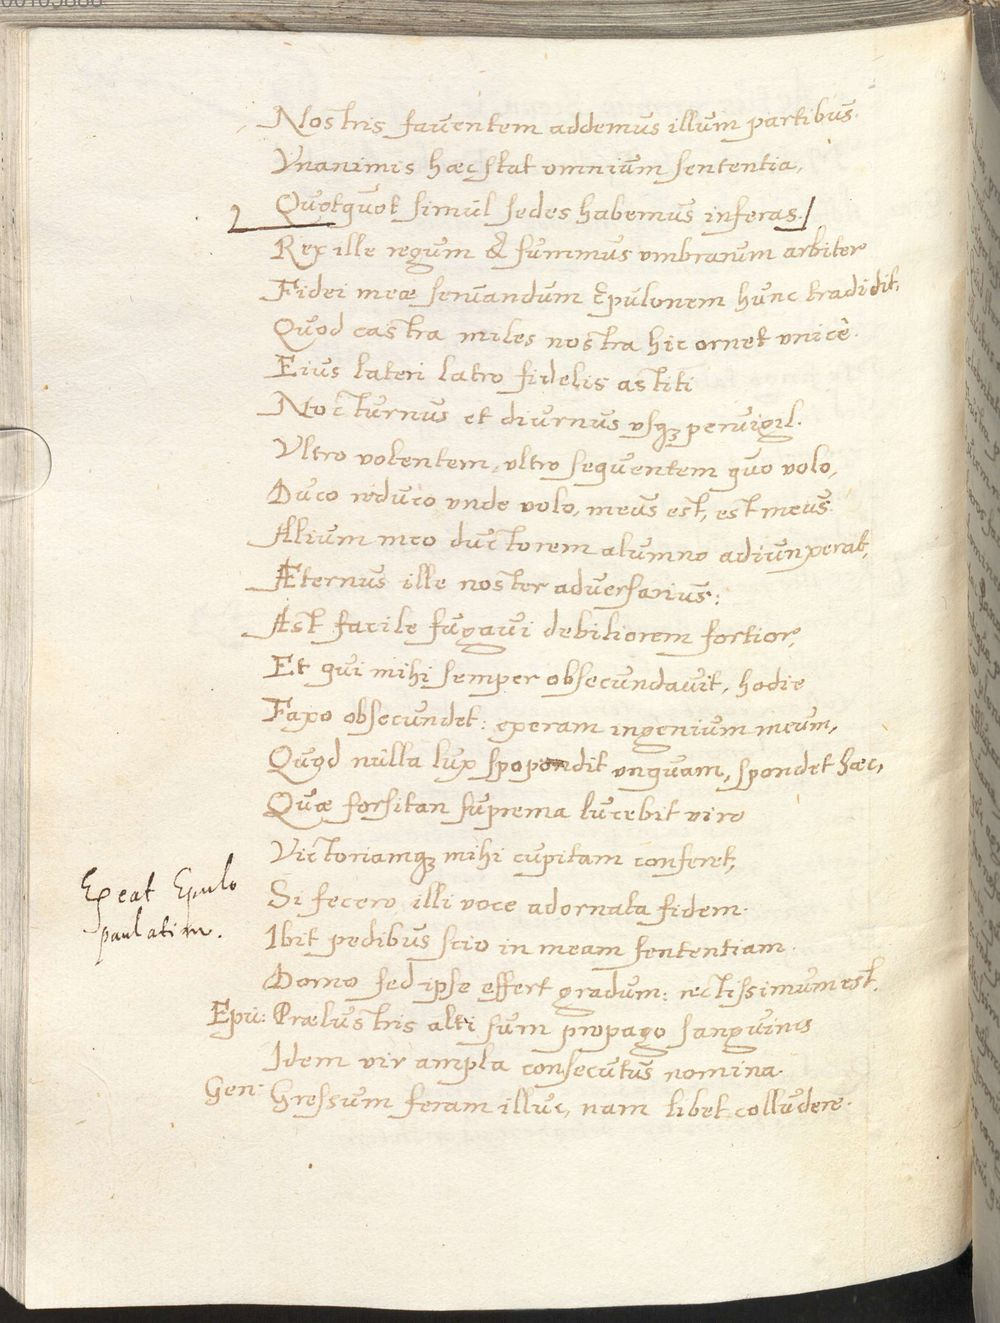 Nostris fauentem addemus illum partibus.
Vnanimis hæc stat omnium sententia,
Quotquot simul sedes habemus inferas.
Rex ille regum & summus vmbrarum arbiter
Fidei meæ seruandum Epulonem hunc tradidit,
Quod castra miles nostra hic ornet vnicè.
Eius lateri latro fidelis astiti
Nocturnus et diurnus vsq; peruigil.
Vltro volentem, vltro sequentem quo volo,
Duco reduco vnde volo, meus est, est meus.
Alium meo ductorem alumno adiunxerat,
Æternus ille noster aduersarius:
Ast facile fugaui debiliorem fortior,
Et qui mihi semper obsecundauit, hodie
Faxo obsecundet: exeram ingenium meum,
Quod nulla lux spopondit vnquam, spondet hæc,
Quæ forsitan suprema lucebit viro
Victoriamq; mihi cupitam conferet,
Exeat Epulo
paulatim.
Si fecero illi voce adornata fidem.
Ibit pedibus scio in meam sententiam.
Domo sed ipse effert gradum: rectissimum est.
Epu: Prælustris alti sum propago sanguinis
Idem vir ampla consecutus nomina.
Gen: Gressum feram illuc, nam libet colludere.